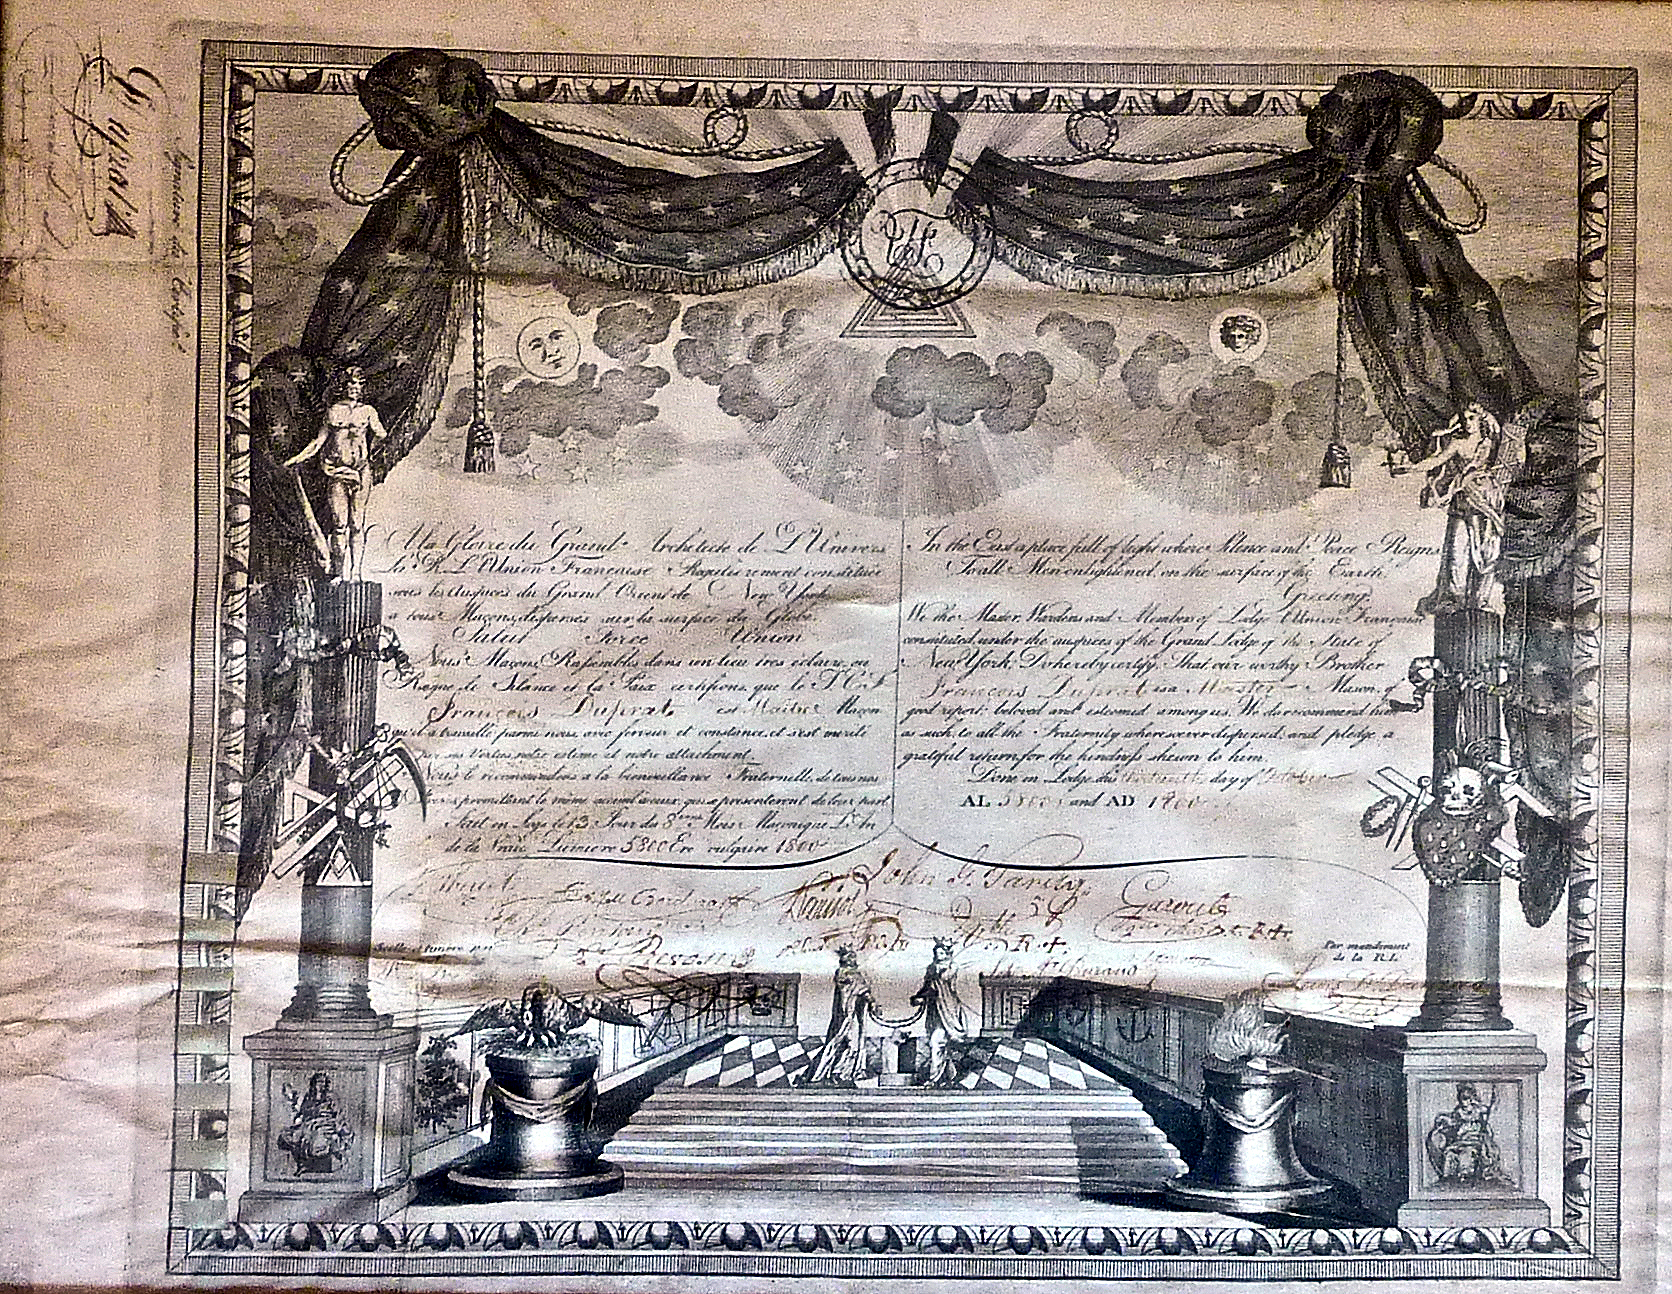 Duprat
Signature du Certifié
A la Gloire du Grand Architecte de L'Univers
La R. L. L'Union Francaise Regulierement constituée
sous les Auspices du Grand Orient de New York
a tous Maçons dispersés sur la surface du Globe.
Salut Force Union
Nous Maçons Rassemblés dans un lieu tres éclairé, ou
Regne le Silence et la Paix certifions que le T. C. F.
François Duprat est Maitre Maçon
qu'il a travaillé parmi nous avec ferveur et constance, et s'est merité
par ses Vertus notre estime et notre attachement
Nous le recommandons a la bienveillance Fraternelle de tous nos
promettant le même accueil a ceux qui se presenteront de leur part
Fait en Loge le 13 Jour du 8eme Mois Maçonique L'An
de la Vraie Lumiere 5800 Ere vulgaire 1800
In the East a place full of light where Silence and Peace Reigns
To all Men enlightened on the surface of the Earth
Greeting
We the Master, Wardens and Members of Lodge L'Union Francaise
constituted under the auspices of the Grand Lodge of the State of
New York, Do hereby certify, That our worthy Brother
François Duprat is a Master Mason of
good report, beloved and esteemed among us. We do recommend him
as such, to all the Fraternity wheresoever dispersed, and pledge a
grateful return for the kindness shewn to him.
Done in Lodge this thirteenth day of October
AL 5800 and AD 1800
John G. Tardy
R +
Par mandement
de la R. L.